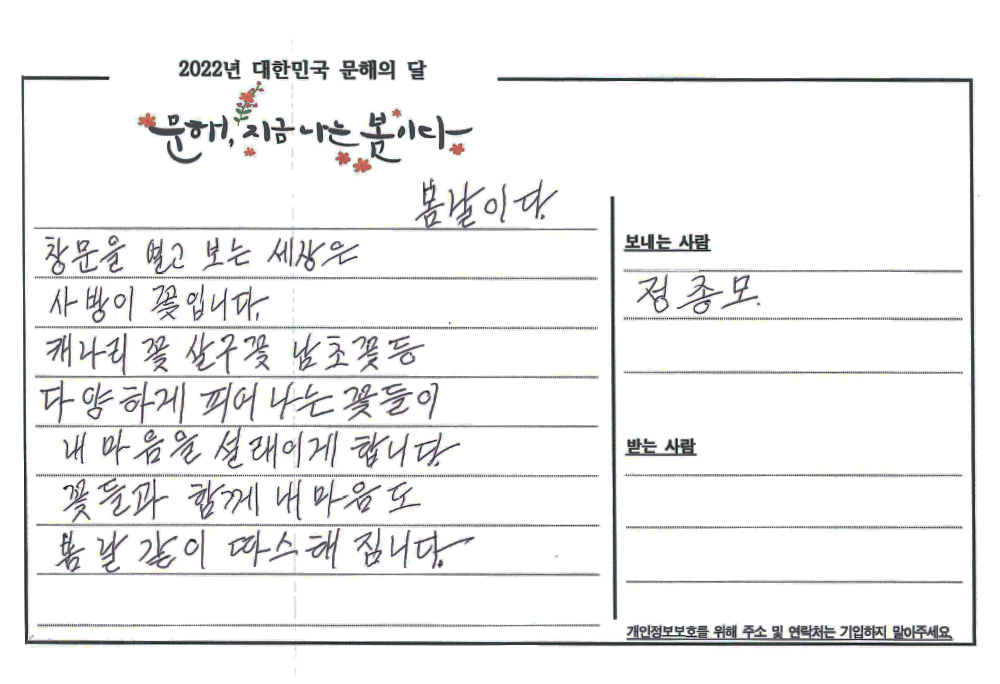 2022년 대한민국 문해의 달
문해, 지금 나는 봄이다
봄날이다.
창문을 열고 보는 세상은
사방이 꽃입니다.
캐나리 꽃 살구꽃 남초꽃등
다양하게 피어 나는 꽃들이
내 마음을 설래이게 합니다.
꽃들과 함께 내 마음도
봄 날 같이 따스해 짐니다.
보내는 사람
정종모.
받는 사람
개인정보보호를 위해 주소 및 연락처는 기입하지 말아주세요.